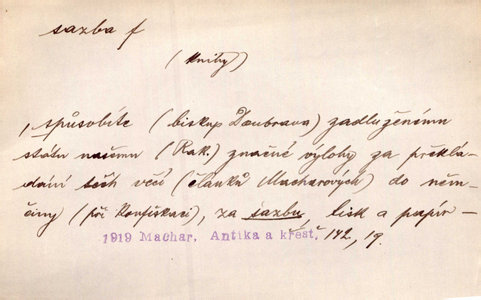 sazba f
(knihy)
, způsobíte (biskup Doubrava) zadluženému
státu našemu (Rak.) značné výlohy za překlá-
dání těch věcí (článků Macharových) do něm-
činy (při konfiskaci), za sazbu, tisk a papír –
1919 Machar, Antika a křesť. 142, 19.